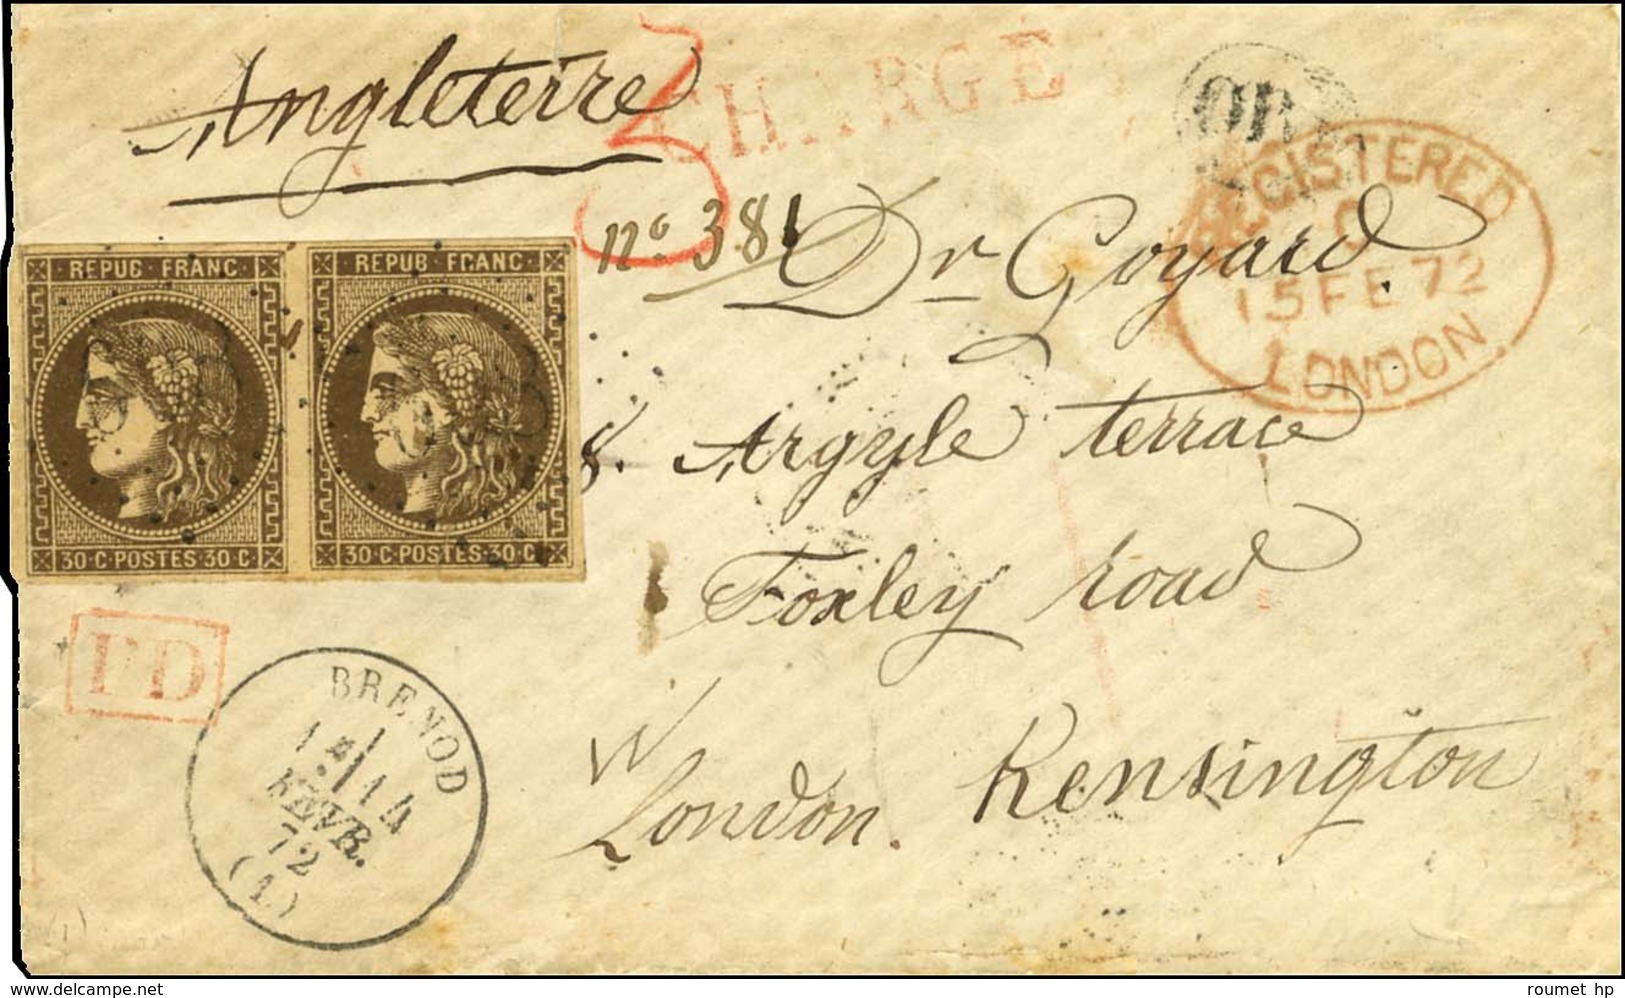 Angleterre
3
CHARGÉ
OR
REGISTERED
15 FE 72
LONDON
nº 381
Dr Goyard
8. Argyle terrace
Foxley road
Kensington
W
London.
REPUB FRANC
30 C POSTES 30 C
REPUB FRANC
30 C POSTES 30 C
PD
BRENOD
14
FEVR.
72
(1)
delcampe.net
roumet hp